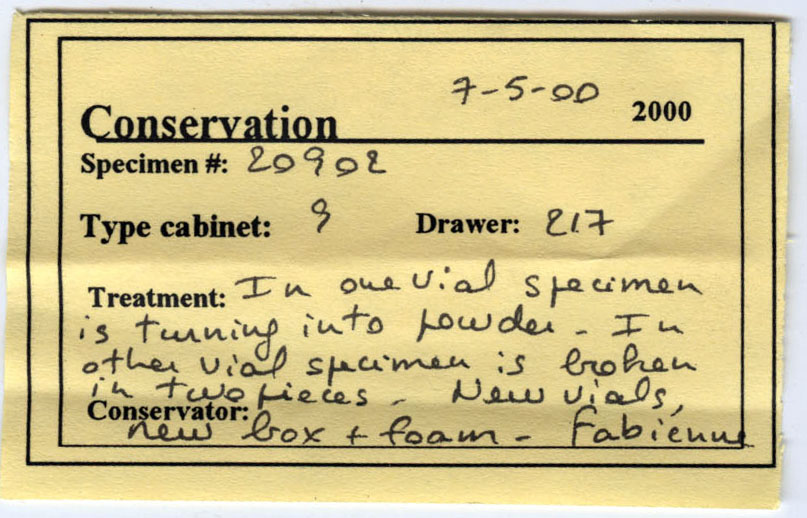 7-5-00 2000
Conservation
Specimen #: 20902
Type cabinet: 9 Drawer: 217
Treatment: In one vial specimen
is turning into powder - In
other vial specimen is broken
in two pieces - New vials,
Conservator:
new box + foam - Fabienne